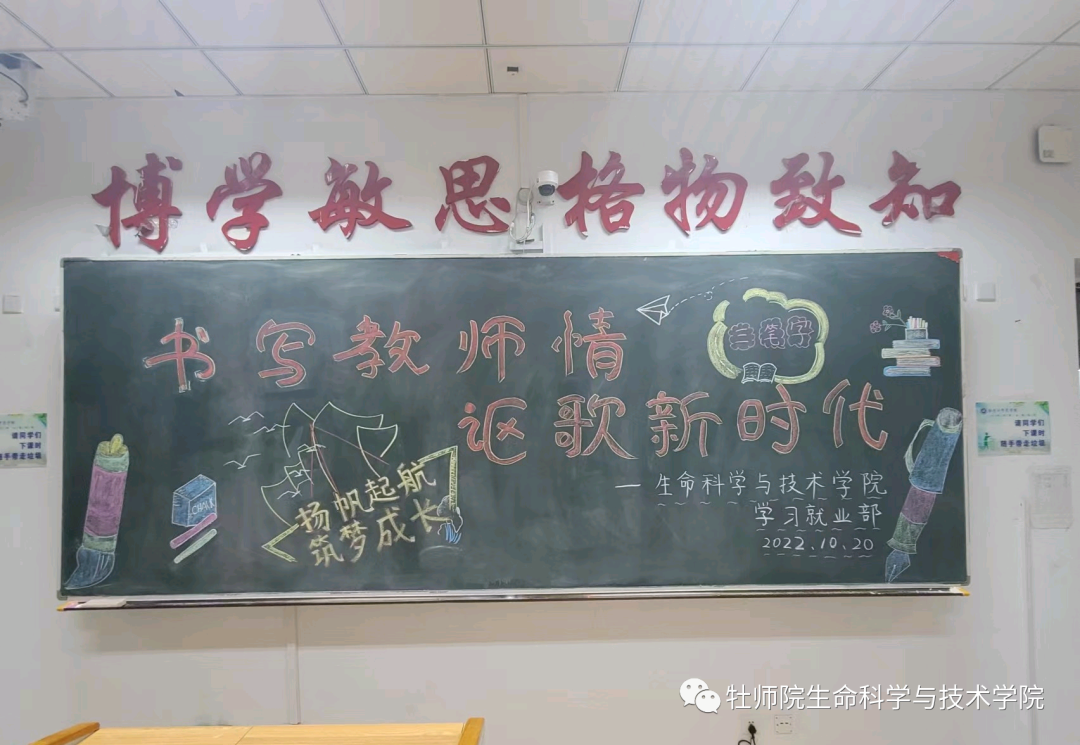 博学敏思 格物致知
书写教师情
三笔字
讴歌新时代
CHALK
扬帆起航
筑梦成长
— 生命科学与技术学院
学习就业部
2022.10.20
请同学们
下课时
随手带走垃圾
请同学们
下课时
随手带走垃圾
牡师院生命科学与技术学院